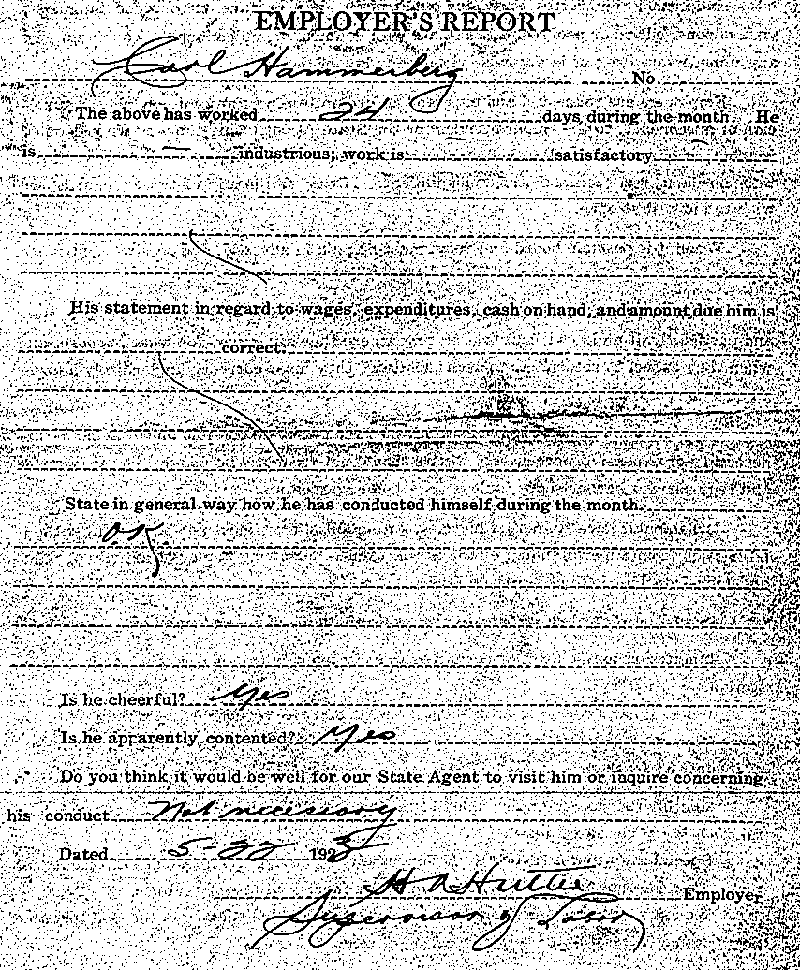 EMPLOYER'S REPORT
Carl Hammerberg No
The above has worked 24 days during the month. He
is industrious; work is satisfactory
His statement in regard to wages, expenditures, cash on hand, and amount due him is
correct.
State in general way how he has conducted himself during the month.
O.K.
Is he cheerful? Yes
Is he apparently contented? Yes
Do you think it would be well for our State Agent to visit him or inquire concerning
his conduct Not necessary
Dated 5-22 1923
H Employer
Supervisor of